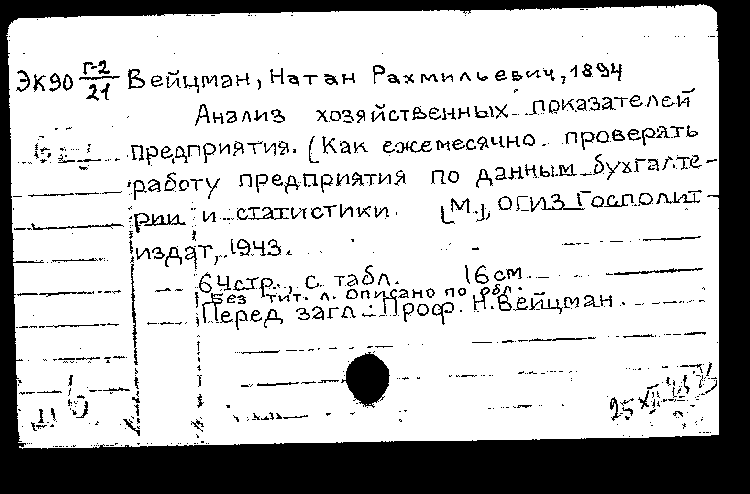 ЭК90 Г-2/21 Вейцман, Натан Рахмильевич, 1894
Анализ хозяйственных показателей
предприятия. (Как ежемесячно проверять
работу предприятия по данным бухгалте-
рии и статистики. [М.], ОГИЗ Госполит-
издат, 1943.
64стр., с табл. 16см.
Без тит. л. описано по обл.
Перед загл.: Проф. Н. Вейцман.
25 XII